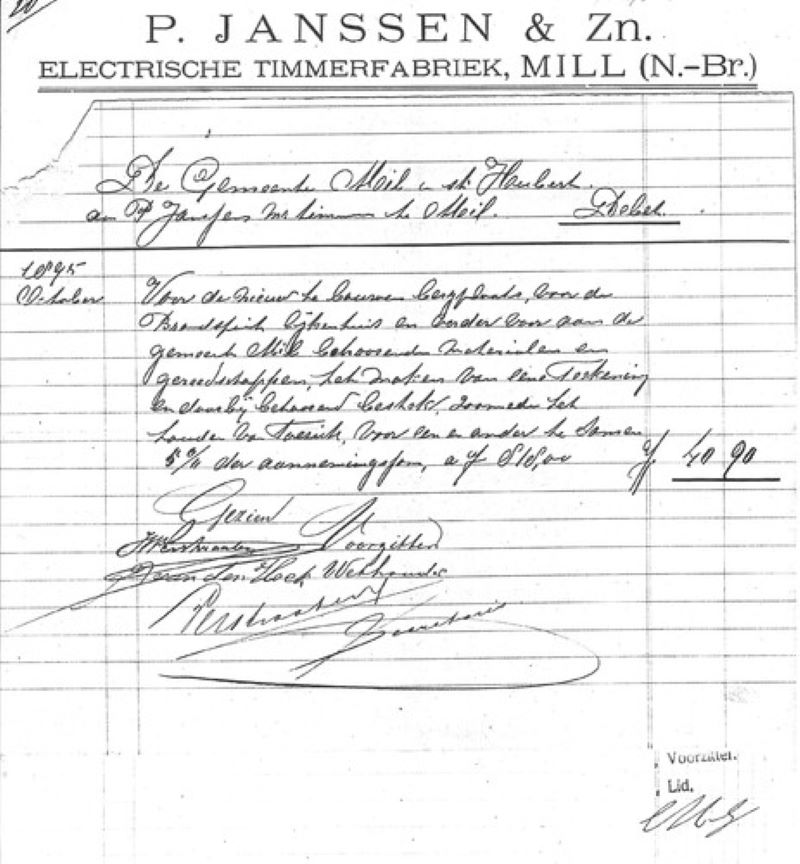 P. JANSSEN & Zn.
ELECTRISCHE TIMMERFABRIEK, MILL (N.-Br.)
De Gemeente Mill en st. Hubert.
aan P Janssen te Mill. Debet.
1895
October Voor de nieuw te bouwen bergplaats, voor de
Brandspuit lijkenhuis en verder voor aan de
gemeente Mill behoorende materialen en
gereedschappen, het maken van eene Teekening
en daarbij behoorend bestek, zoomede het
houden van Toezicht, voor een en ander te Samen
5% der aannemingssom, a f 818,00 f 40 90
Gezien
Voorzitter
van den Hoek Wethouder
Verstraaten
Secretaris
Voorzitter.
Lid,